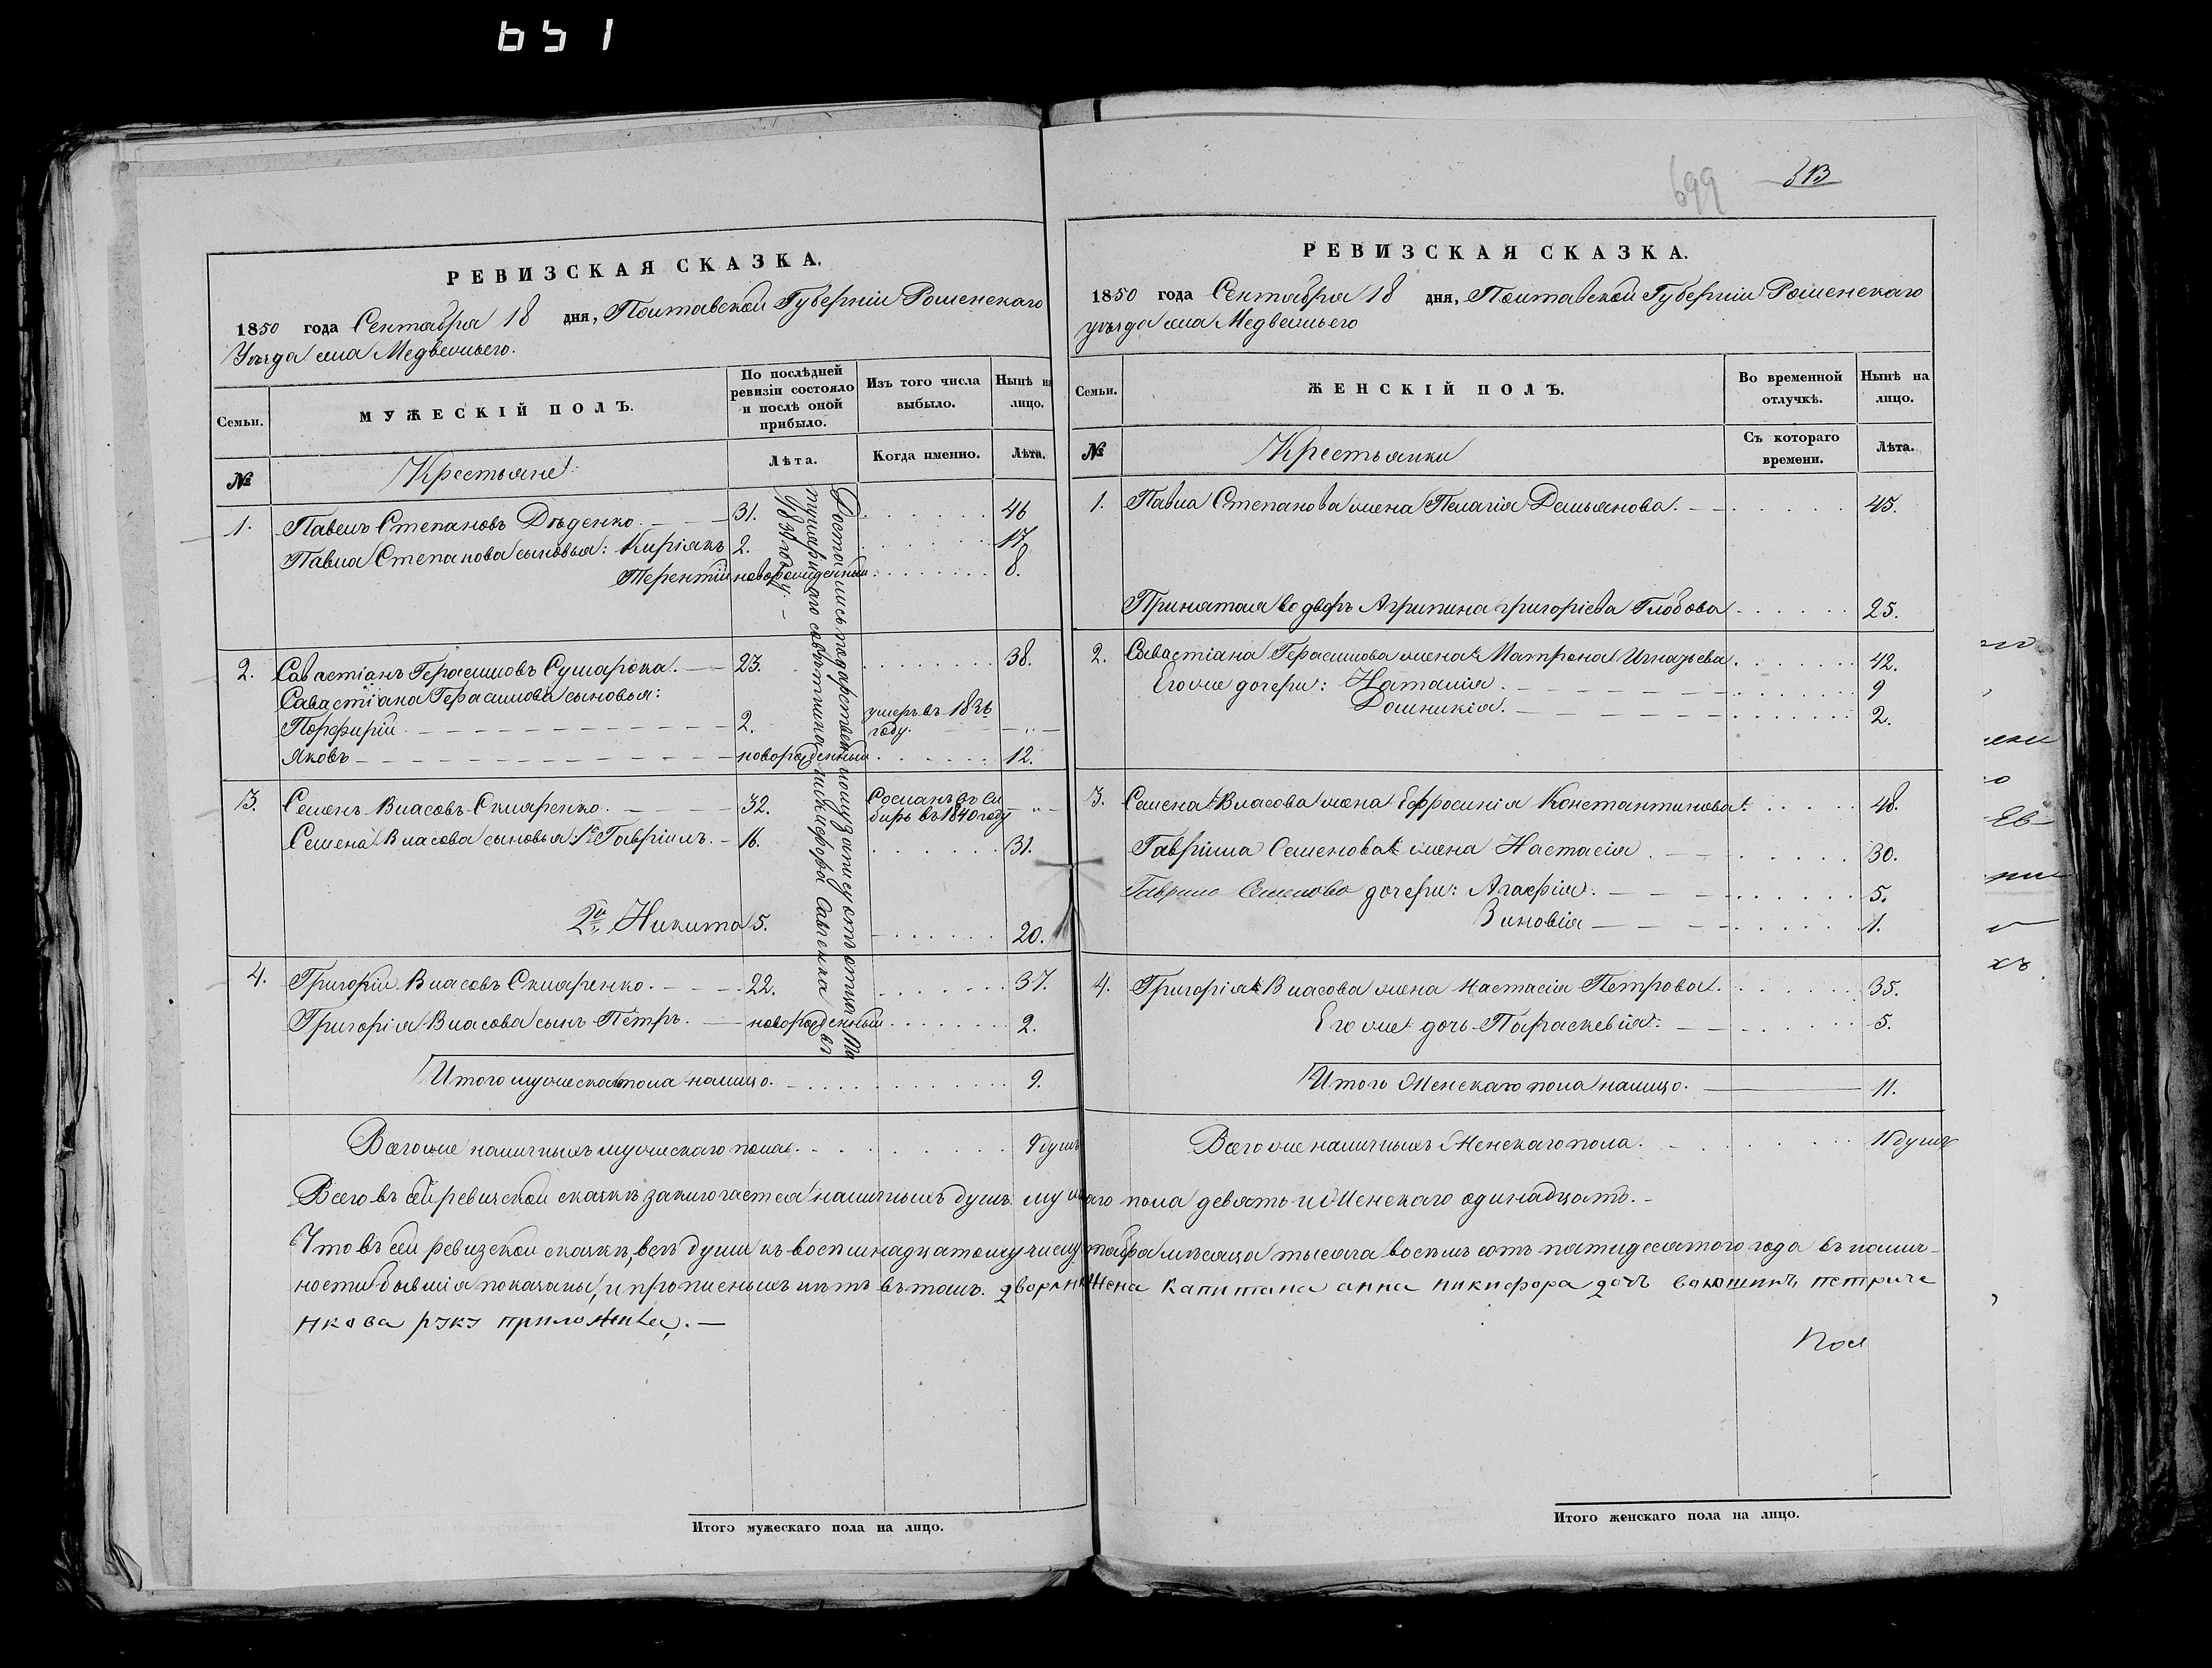 651
699 513
РЕВИЗСКАЯ СКАЗКА.
1850 года Сентября 18 дня, Полтавской Губерніи Роменскаго
Уѣзда села Медвежьего.
Семьи.
МУЖЕСКІЙ ПОЛЪ.
По послѣдней ревизіи состояло и послѣ оной прибыло.
Изъ того числа выбыло.
Нынѣ на лицо.
№
Крестьяне
Лѣта.
Когда именно.
Лѣта.
1. Павелъ Степановъ Дѣденко. 31. 46
Павла Степанова сыновья: Киріякъ 2. 17
Терентій новорожденный 8.
2. Савастіанъ Герасимовъ Сумарока. 23. 38.
Савастіана Герасимова сыновья:
Порфирій 2. умеръ въ 1836 году. „
Яковъ новорожденный 12.
3. Семенъ Власовъ Скляренко. 32. Сосланъ въ Сибирь въ 1840 году „
Семена Власова сыновья: 1й Гавріилъ. 16. 31.
2й Никита 5. 20.
4. Григорій Власовъ Скляренко. 22. 37.
Григорія Власова сынъ Петръ. новорожденный 2.
Достались подарственному запису отъ отца
титулярнаго совѣтника Никифора Савченка въ
1838 году.
Итого мужеска пола налицо. 9.
Всего же наличныхъ мужескаго пола. 9 душъ
РЕВИЗСКАЯ СКАЗКА.
1850 года Сентября 18 дня, Полтавской Губерніи Роменскаго
уѣзда села Медвежьего
Семьи.
ЖЕНСКІЙ ПОЛЪ.
Во временной отлучкѣ.
Нынѣ на лицо.
№
Крестьянки
Съ котораго времени.
Лѣта.
1. Павла Степанова жена Пелагія Демьянова. 45.
Принятая во дворъ Агрипина Григоріева Глобова 25.
2. Савастіана Герасимова жена Матрона Игнатьева. 42.
Его же дочери: Наталія. 9
Домникія. 2.
3. Семена Власова жена Ефросинія Константинова. 48.
Гавріила Семенова жена Настасія 30.
Гаврила Семенова дочери: Агафія. 5.
Зиновія 1.
4. Григорія Власова жена Настасія Петрова. 35.
Его же дочь Параскевія: 5.
Итого Женскаго пола налицо. 11.
Всего же наличныхъ Женскаго пола. 11 душъ
Всего въ сей ревизской сказкѣ заключается наличныхъ душъ мужскаго пола девять и Женскаго одинадцать.
Что въ сей ревизской сказкѣ, всѣ души къ восемнадцатому числу мѣсяца тысяча восемь сотъ пятидесятого года въ налич-
ности бывшія показаны, и прописныхъ нѣтъ въ томъ. дворянка Жена капитана анна никифора дочь петриче
нкова руку приложила. —
Пол
Итого мужескаго пола на лицо.
Итого женскаго пола на лицо.